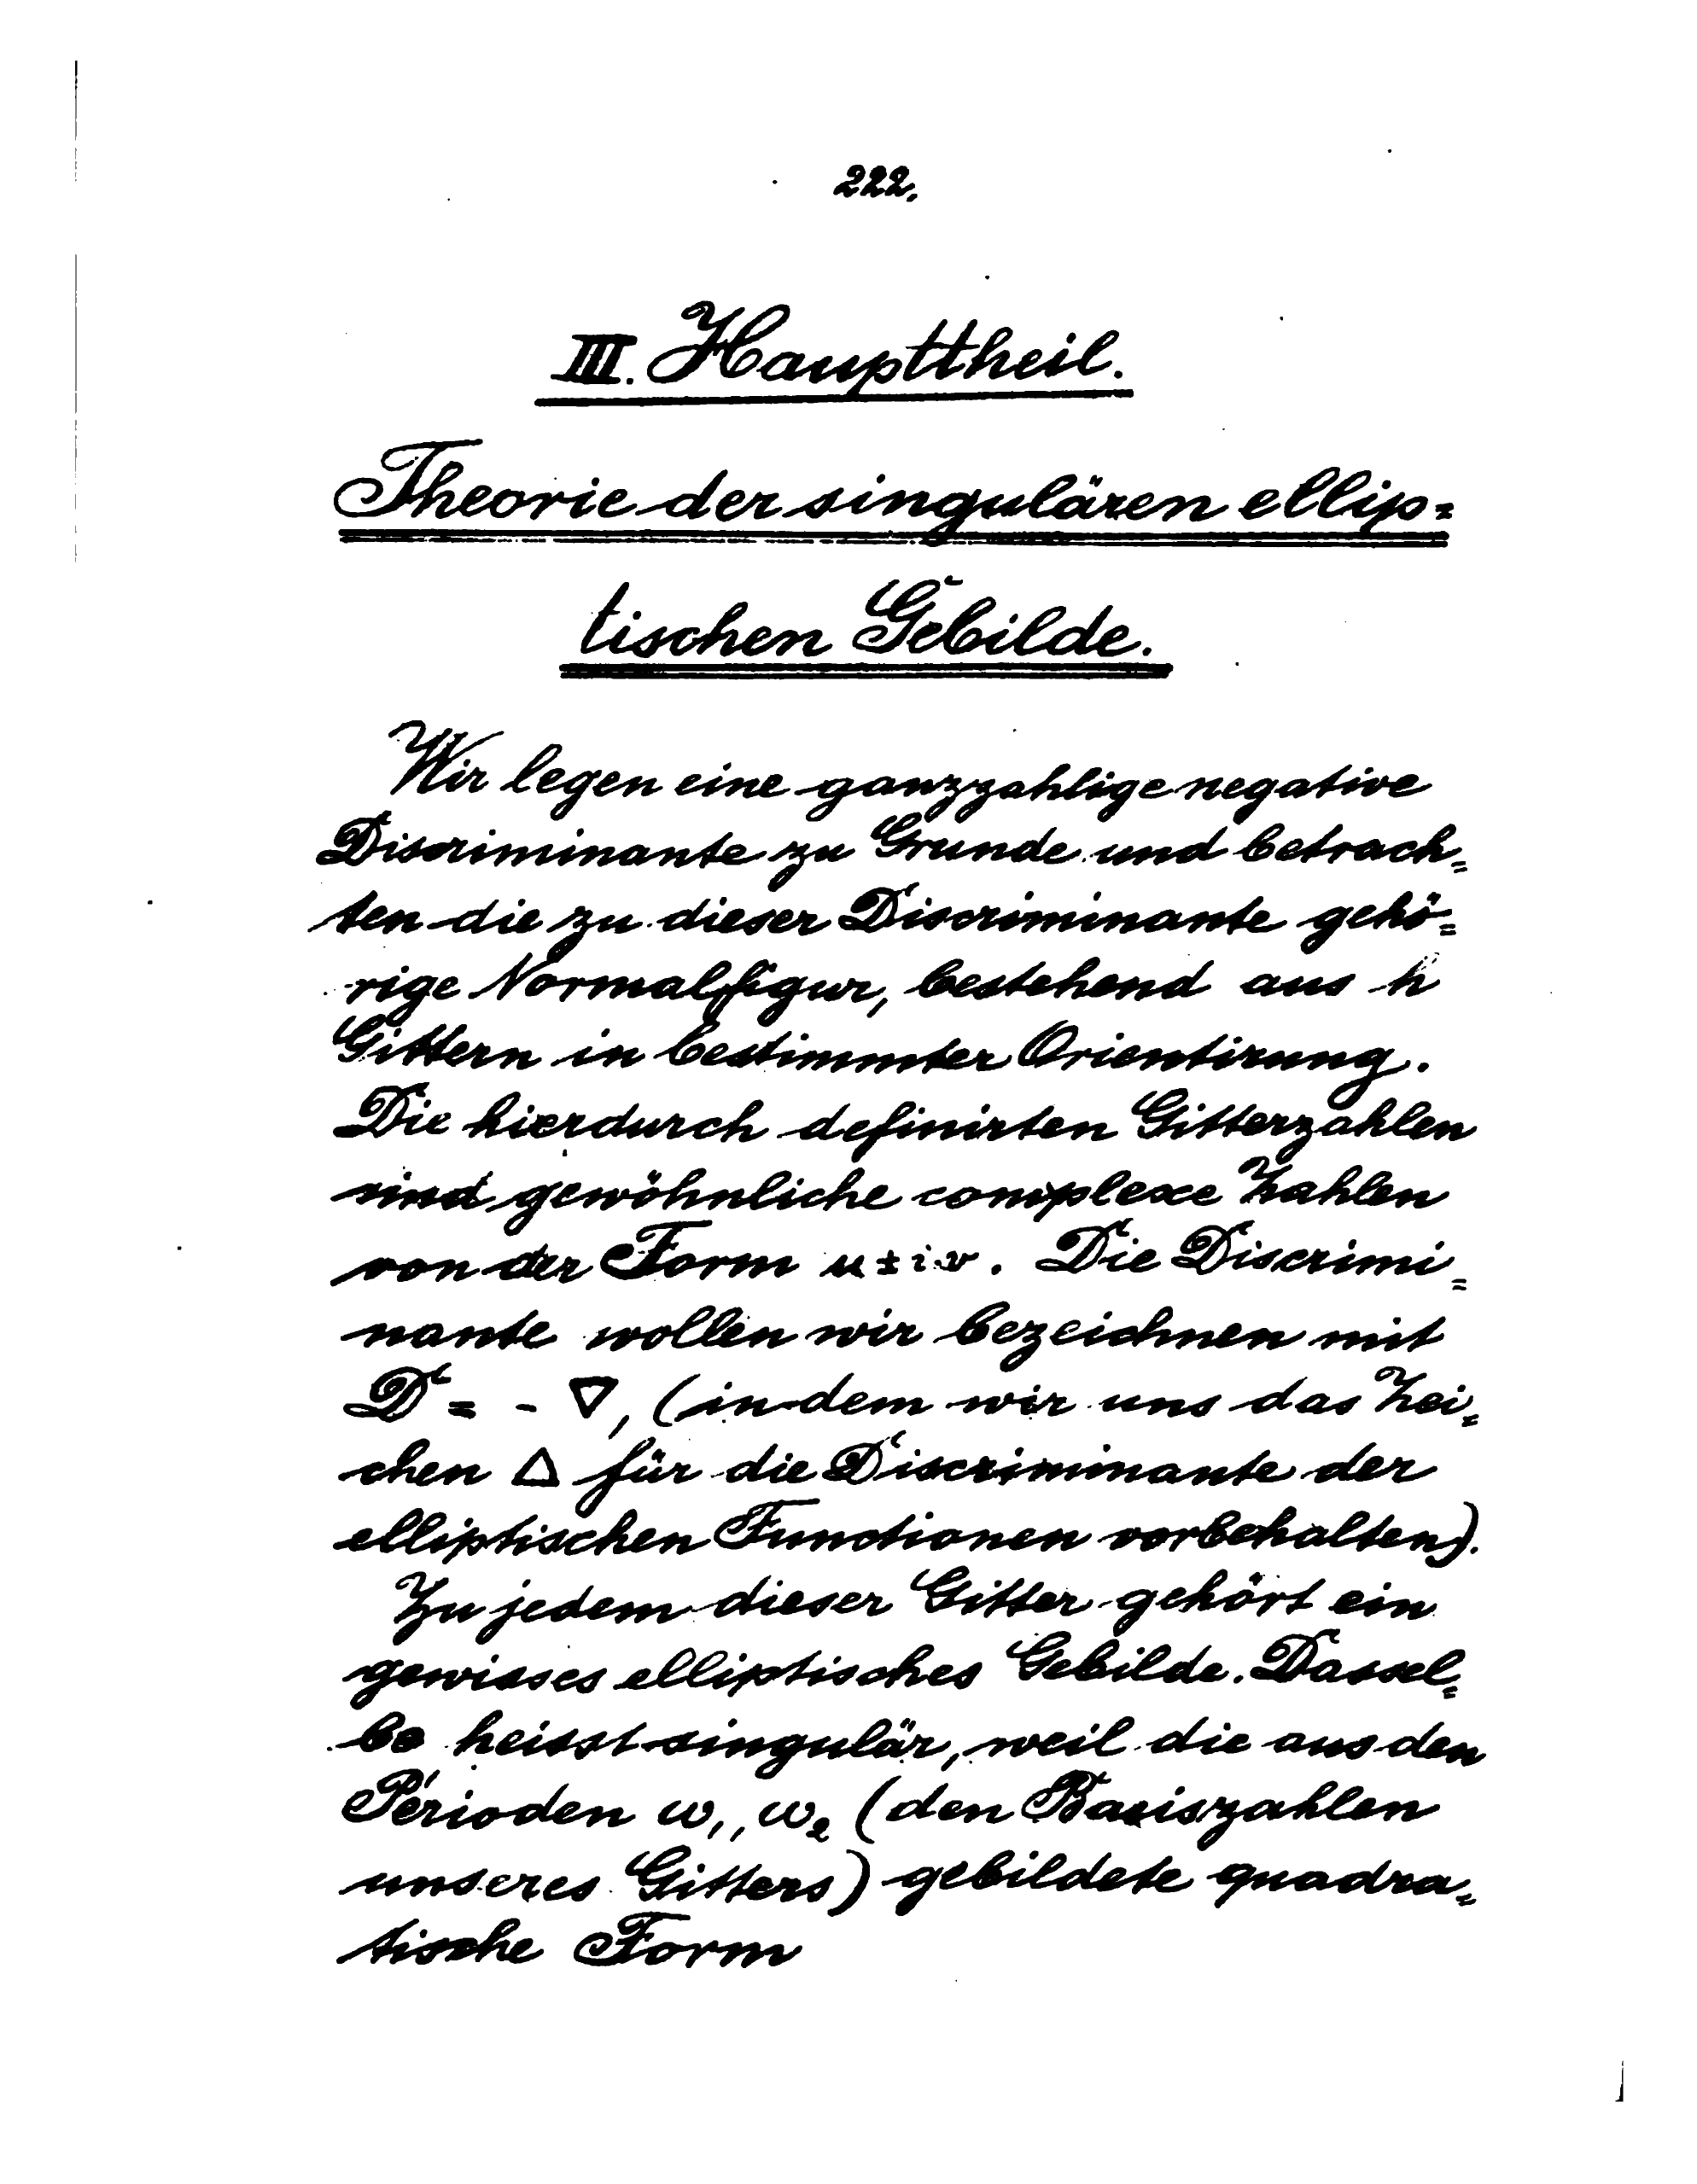 222.
III. Haupttheil.
Theorie der singulären ellip=
tischen Gebilde.
Wir legen eine ganzzahlige negative
Discriminante zu Grunde und betrach=
ten die zu dieser Discriminante gehö=
rige Normalfigur, bestehend aus h
Gittern in bestimmter Orientirung.
Die hierdurch definirten Gitterzahlen
sind gewöhnliche complexe Zahlen
von der Form u ± i v. Die Discrimi=
nante wollen wir bezeichnen mit
D = - ∇, (indem wir uns das Zei=
chen Δ für die Discriminante der
elliptischen Functionen vorbehalten).
Zu jedem dieser Gitter gehört ein
gewisses elliptisches Gebilde. Dassel=
be heisst singulär, weil die aus den
Perioden ω₁, ω₂ (den Basiszahlen
unseres Gitters) gebildete quadra=
tische Form